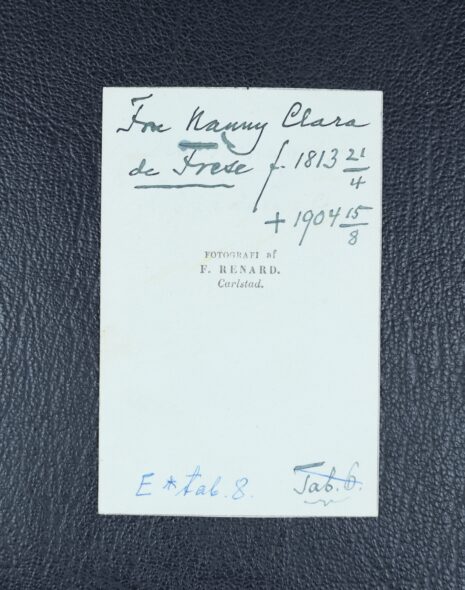 Fru Nanny Clara
de Frese f. 1813 21/4
+ 1904 15/8
FOTOGRAFI af
F. RENARD.
Carlstad.
E * tab. 8. Tab. 6.